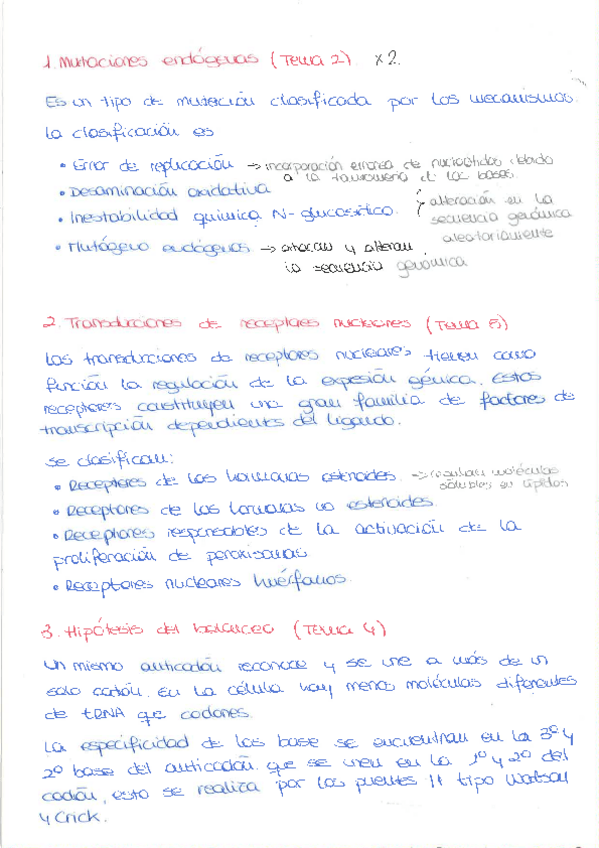 1. Mutaciones endógenas (Tema 2) x2.
Es un tipo de mutación clasificada por los mecanismos.
La clasificación es
• Error de replicación → incorporación errónea de nucleótidos debido
a la tautomería de las bases.
• Desaminación oxidativa
• Inestabilidad química N-glucosídico.
alteración en la
secuencia genómica
aleatoriamente
• Mutágeno endógenos → atacan y alteran
la secuencia genómica
2. Transducciones de receptores nucleares (Tema 5)
Las transducciones de receptores nucleares tienen como
función la regulación de la expresión génica. Estos
receptores constituyen una gran familia de factores de
transcripción dependientes del ligando.
Se clasifican:
• Receptores de las hormonas esteroides. → moléculas
solubles en lípidos
• Receptores de las hormonas no esteroides
• Receptores responsables de la activación de la
proliferación de peroxisomas
• Receptores nucleares huérfanos.
3. Hipótesis del balanceo (Tema 4)
Un mismo anticodón reconoce y se une a más de un
solo codón. En la célula hay menos moléculas diferentes
de tRNA que codones.
La especificidad de las base se encuentran en la 3º y
2º base del anticodón que se unen en la 1º y 2º del
codón, esto se realiza por los puentes H tipo Watson
y Crick.